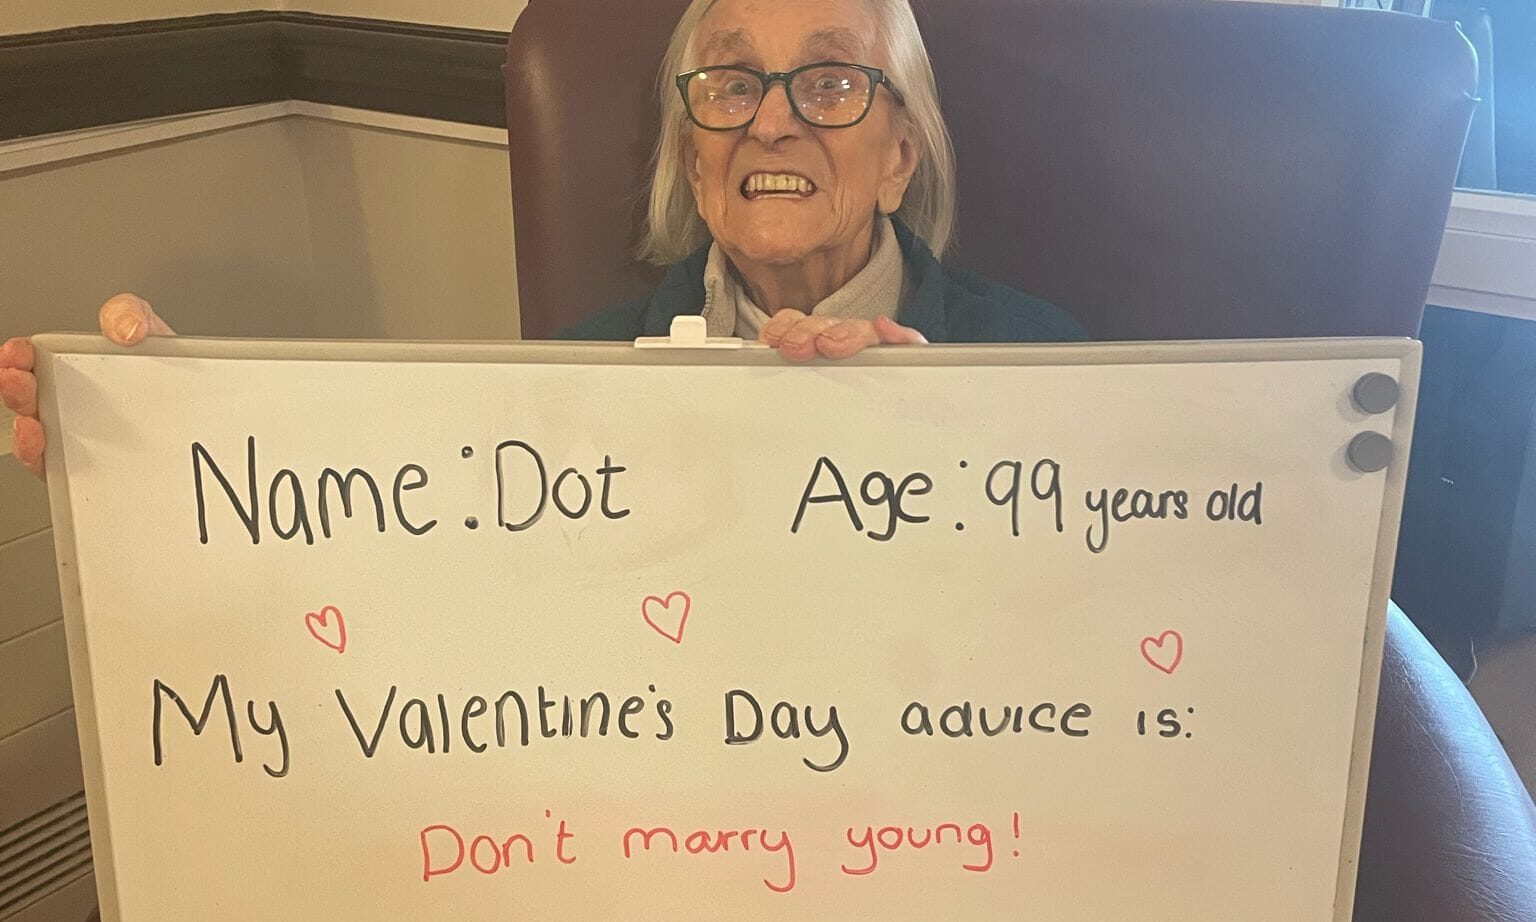 Name: Dot Age: 99 years old
My Valentine's Day advice is:
Don't marry young!